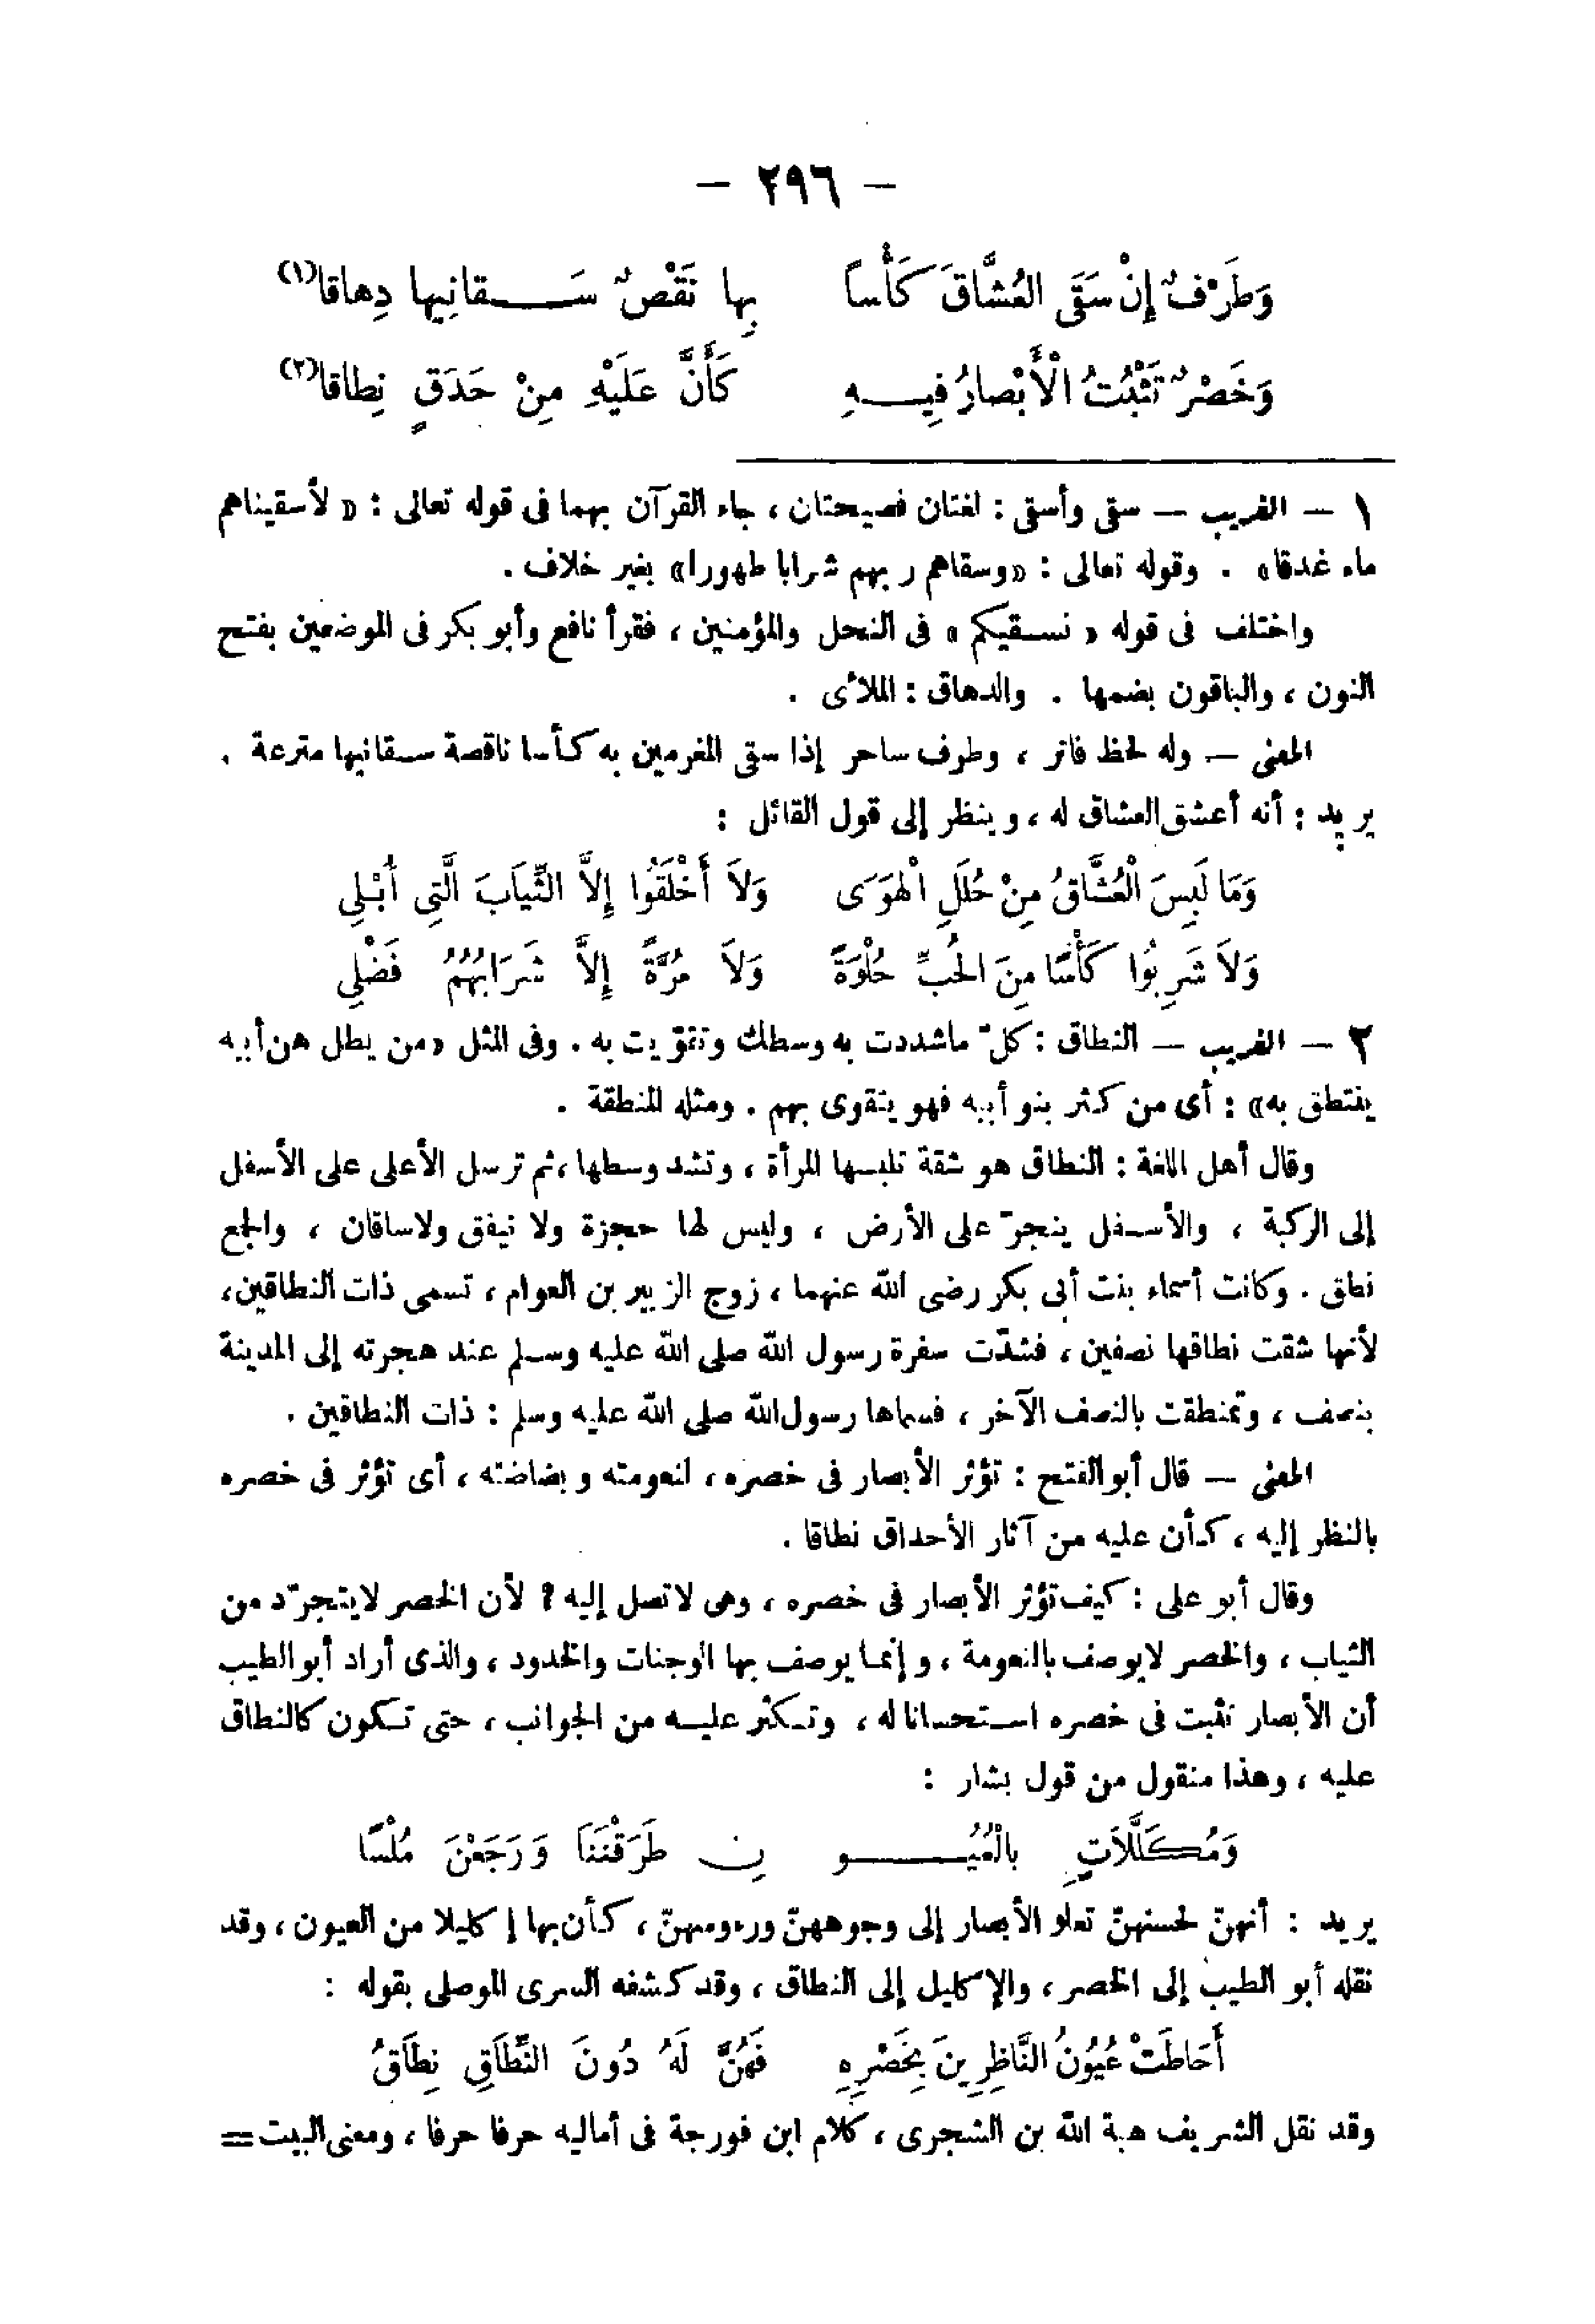 — ٢٩٦ —
وَطَرْفٌ إِنْ سَقَى العُشَّاقَ كَأْساً بِها نَقْصٌ سَــقانِيها دِهاقا(١)
وَخَصْرٌ تَثْبُتُ الْأَبْصارُ فِيــهِ كَأَنَّ عَلَيْهِ مِنْ حَدَقٍ نِطاقا(٢)
١ — الغريب — سقى وأسقى : لغتان فصيحتان ، جاء القرآن بهما فى قوله تعالى : « لأسقيناهم
ماء غدقا» . وقوله تعالى : «وسقاهم ربهم شرابا طهورا» بغير خلاف .
واختلف فى قوله « نسقيكم » فى النحل والمؤمنين ، فقرأ نافع وأبو بكر فى الموضعين بفتح
النون ، والباقون بضمها . والدهاق : الملأى .
المعنى — وله لحظ فاتر ، وطرف ساحر إذا سقى المغرمين به كأسا ناقصة سقانيها مترعة .
يريد : أنه أعشق العشاق له ، وينظر إلى قول القائل :
وَمَا لَبِسَ الْعُشَّاقُ مِنْ حُلَلِ الْهَوَى وَلاَ أَخْلَقُوا إِلاَّ الثِّيَابَ الَّتِى أُبْلِى
وَلاَ شَرِبُوا كَأْسًا مِنَ الْحُبِّ حُلْوَةً وَلاَ مُرَّةً إِلاَّ شَرَابُهُمُ فَضْلِى
٢ — الغريب — النطاق : كلّ ماشددت به وسطك وتتقوّيت به . وفى المثل «من يطل هن أبيه
ينتطق به» : أى من كثر بنو أبيه فهو يتقوى بهم . ومثله المنطقة .
وقال أهل اللغة : النطاق هو شقة تلبسها المرأة ، وتشد وسطها ، ثم ترسل الأعلى على الأسفل
إلى الركبة ، والأسفل ينجرّ على الأرض ، وليس لها حجزة ولا نيفق ولاساقان ، والجمع
نطق . وكانت أسماء بنت أبى بكر رضى الله عنهما ، زوج الزبير بن العوام ، تسمى ذات النطاقين،
لأنها شقت نطاقها نصفين ، فشدّت سفرة رسول الله صلى الله عليه وسلم عند هجرته إلى المدينة
بنصف ، وتمنطقت بالنصف الآخر ، فسماها رسول الله صلى الله عليه وسلم : ذات النطاقين .
المعنى — قال أبو الفتح : تؤثر الأبصار فى خصره ، لنعومته وبضاضته ، أى تؤثر فى خصره
بالنظر إليه ، كأن عليه من آثار الأحداق نطاقا .
وقال أبو على : كيف تؤثر الأبصار فى خصره ، وهى لا تصل إليه ؟ لأن الخصر لايتجرّد من
الثياب ، والخصر لا يوصف بالنعومة ، وإنما يوصف بها الوجنات والخدود ، والذى أراد أبو الطيب
أن الأبصار تثبت فى خصره استحسانا له ، وتكثر عليه من الجوانب ، حتى تكون كالنطاق
عليه ، وهذا منقول من قول بشار :
وَمُكَلَّلاَتٍ بِالْعُيُــو نِ طَرَقْنَنَا وَرَجَعْنَ مُلْسًا
يريد : أنهنّ لحسنهنّ تعلو الأبصار إلى وجوههنّ ورءوسهنّ ، كأن بها إكليلا من العيون ، وقد
نقله أبو الطيب إلى الخصر ، والإكليل إلى النطاق ، وقد كشفه السرى الموصلى بقوله :
أَحَاطَتْ عُيُونُ النَّاظِرِينَ بِخَصْرِهِ فَهُنَّ لَهُ دُونَ النِّطَاقِ نِطَاقُ
وقد نقل الشريف هبة الله بن الشجرى ، كلام ابن فورجة فى أماليه حرفا حرفا ، ومعنى البيت =